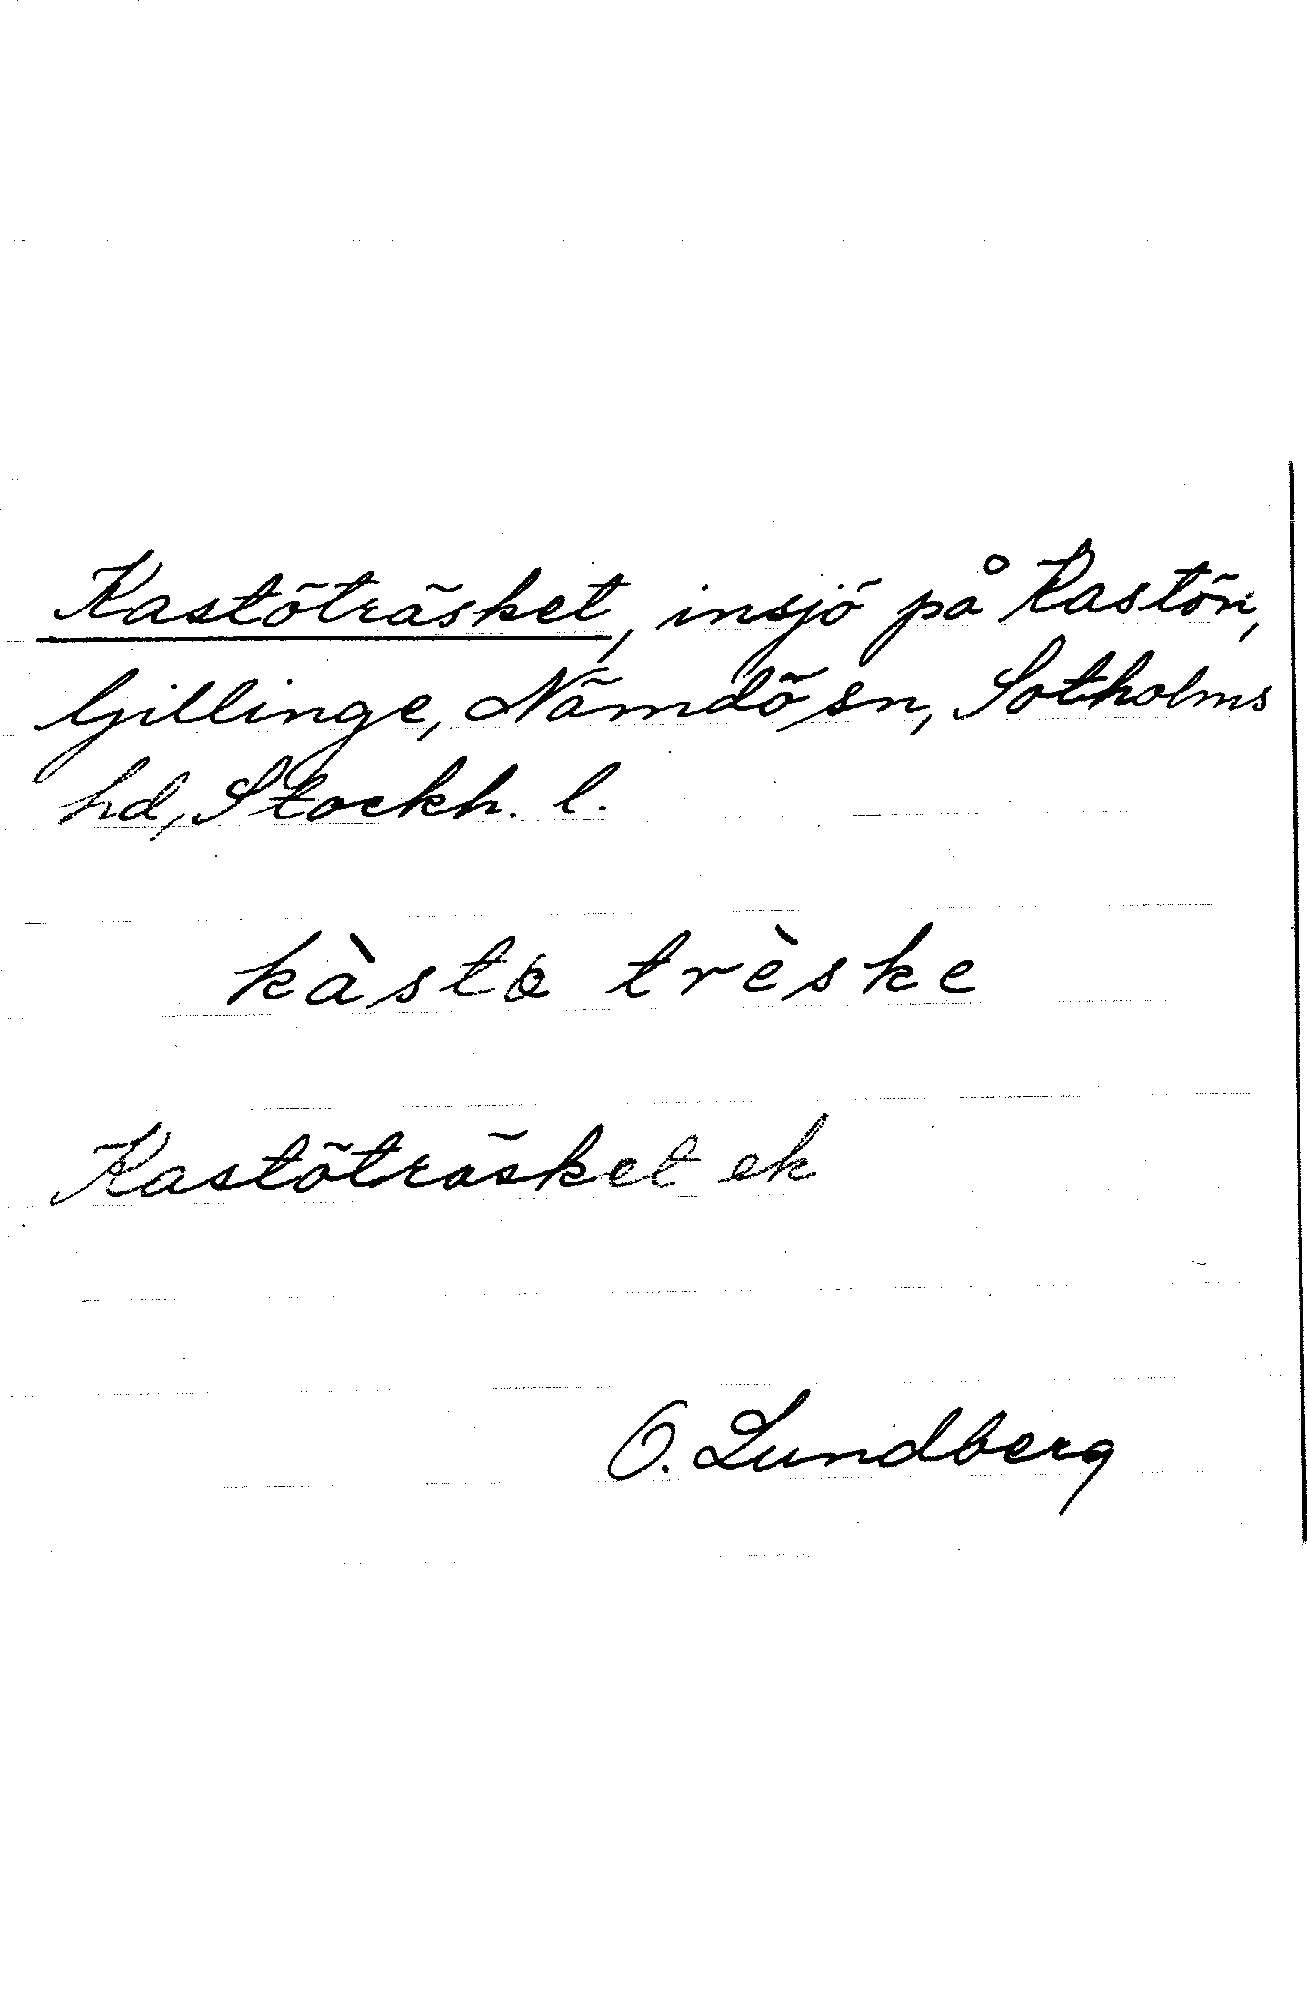 Kastöträsket, insjö på Kastön,
Gillinge, Nämdö sn, Sotholms
hd, Stockh. l.
kàstɵ trèske
Kastöträsket ek
O. Lundberg